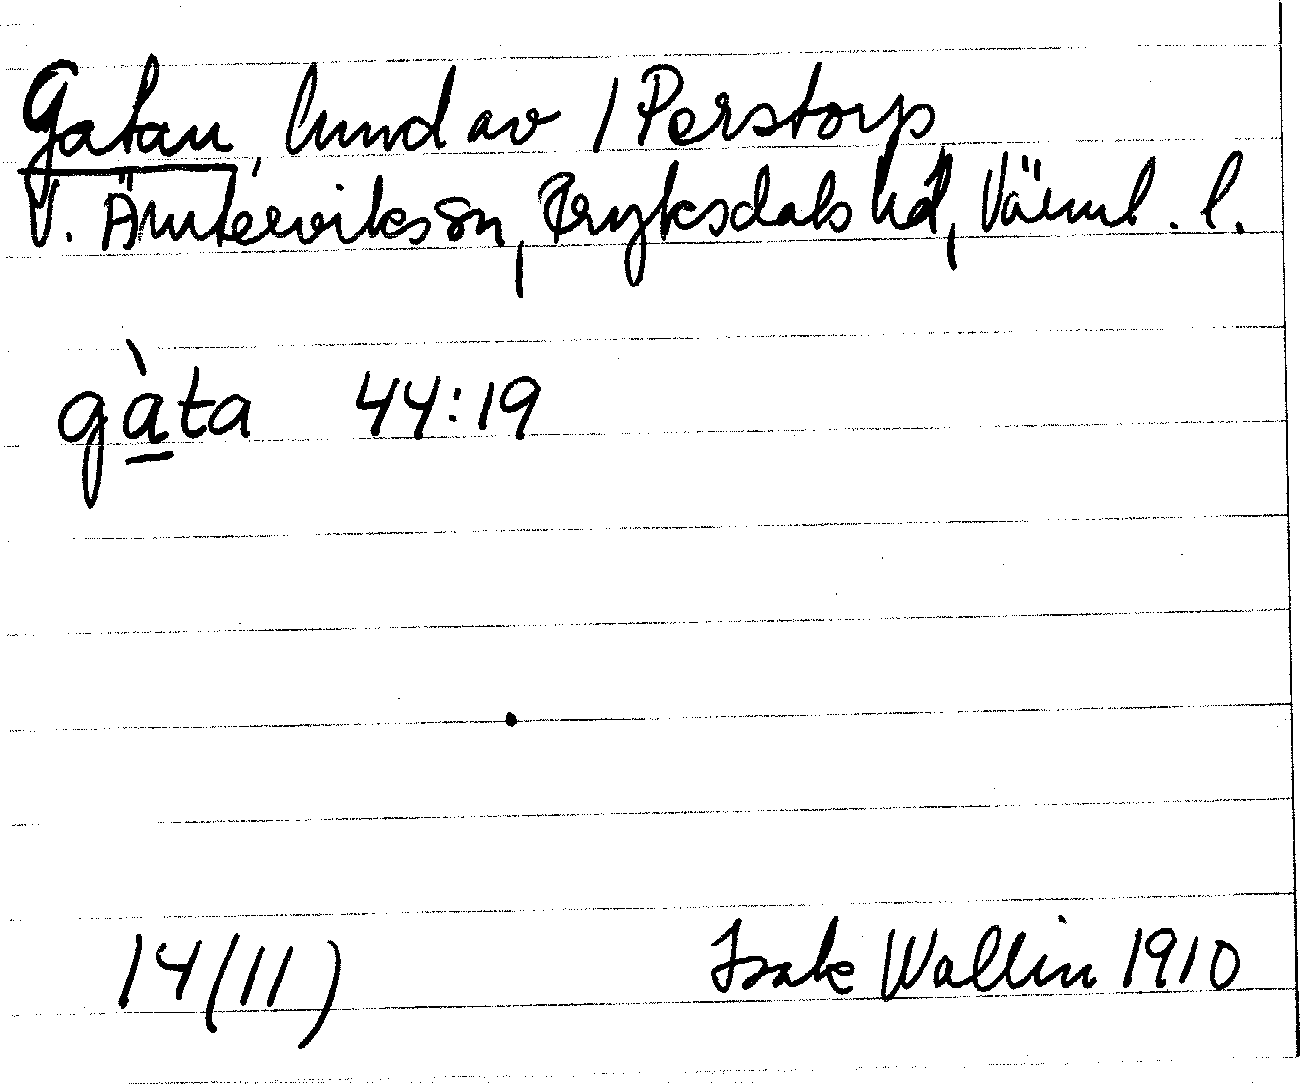 Gatan, hmnd av 1 Perstorp
V. Ämterviks sn, Fryksdals hd, Värml. l.
gàta 44:19
14(11) Isak Wallin 1910